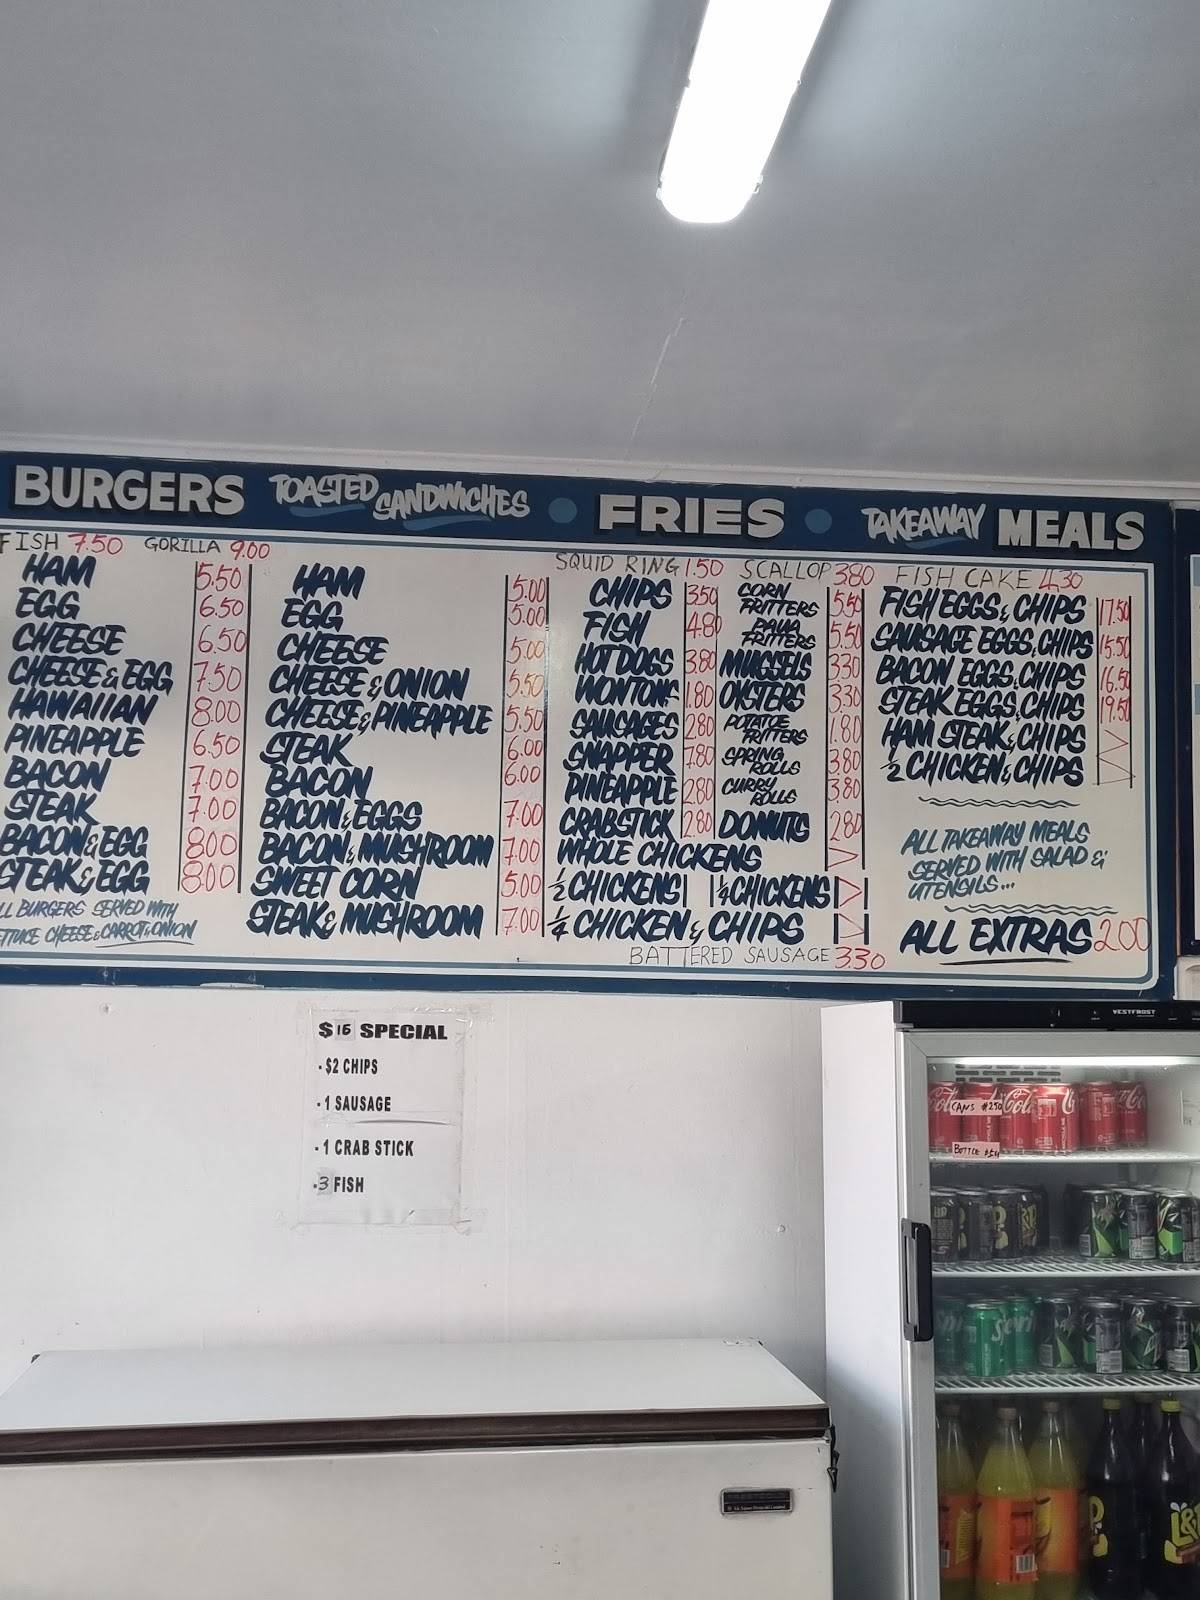 BURGERS TOASTED SANDWICHES FRIES TAKEAWAY MEALS
FISH 7.50 GORILLA 9.00
HAM 5.50
EGG 6.50
CHEESE 6.50
CHEESE & EGG 7.50
HAWAIIAN 8.00
PINEAPPLE 6.50
BACON 7.00
STEAK 7.00
BACON & EGG 8.00
STEAK & EGG 8.00
LL BURGERS SERVED WITH
ETTUCE CHEESE & CARROT & ONION
HAM 5.00
EGG 5.00
CHEESE 5.00
CHEESE & ONION 5.50
CHEESE & PINEAPPLE 5.50
STEAK 6.00
BACON 6.00
BACON & EGGS 7.00
BACON & MUSHROOM 7.00
SWEET CORN 5.00
STEAK & MUSHROOM 7.00
SQUID RING 1.50 SCALLOP 3.80
CHIPS 3.50 CORN FRITTERS 5.50
FISH 4.80 PAUA FRITTERS 5.50
HOT DOGS 3.80 MUSSELS 3.30
WONTONS 1.80 OYSTERS 3.30
SAUSAGES 2.80 POTATOE FRITTERS 1.80
SNAPPER 7.80 SPRING ROLLS 3.80
PINEAPPLE 2.80 CURRY ROLLS 3.80
CRABSTICK 2.80 DONNUTS 2.80
WHOLE CHICKENS
1/2 CHICKENS 1/4 CHICKENS
1/4 CHICKEN & CHIPS
BATTERED SAUSAGE 3.30
FISH CAKE 4.30
FISH EGGS & CHIPS 17.50
SAUSAGE EGGS & CHIPS 15.50
BACON EGGS & CHIPS 16.50
STEAK EGGS & CHIPS 19.50
HAM STEAK & CHIPS
1/2 CHICKEN & CHIPS
ALL TAKEAWAY MEALS
SERVED WITH SALAD &
UTENSILS...
ALL EXTRAS 2.00
$ 16 SPECIAL
- $2 CHIPS
- 1 SAUSAGE
- 1 CRAB STICK
- 3 FISH
VESTFROST
CANS $2.50
BOTTLE $5.00
L&P
Sprite